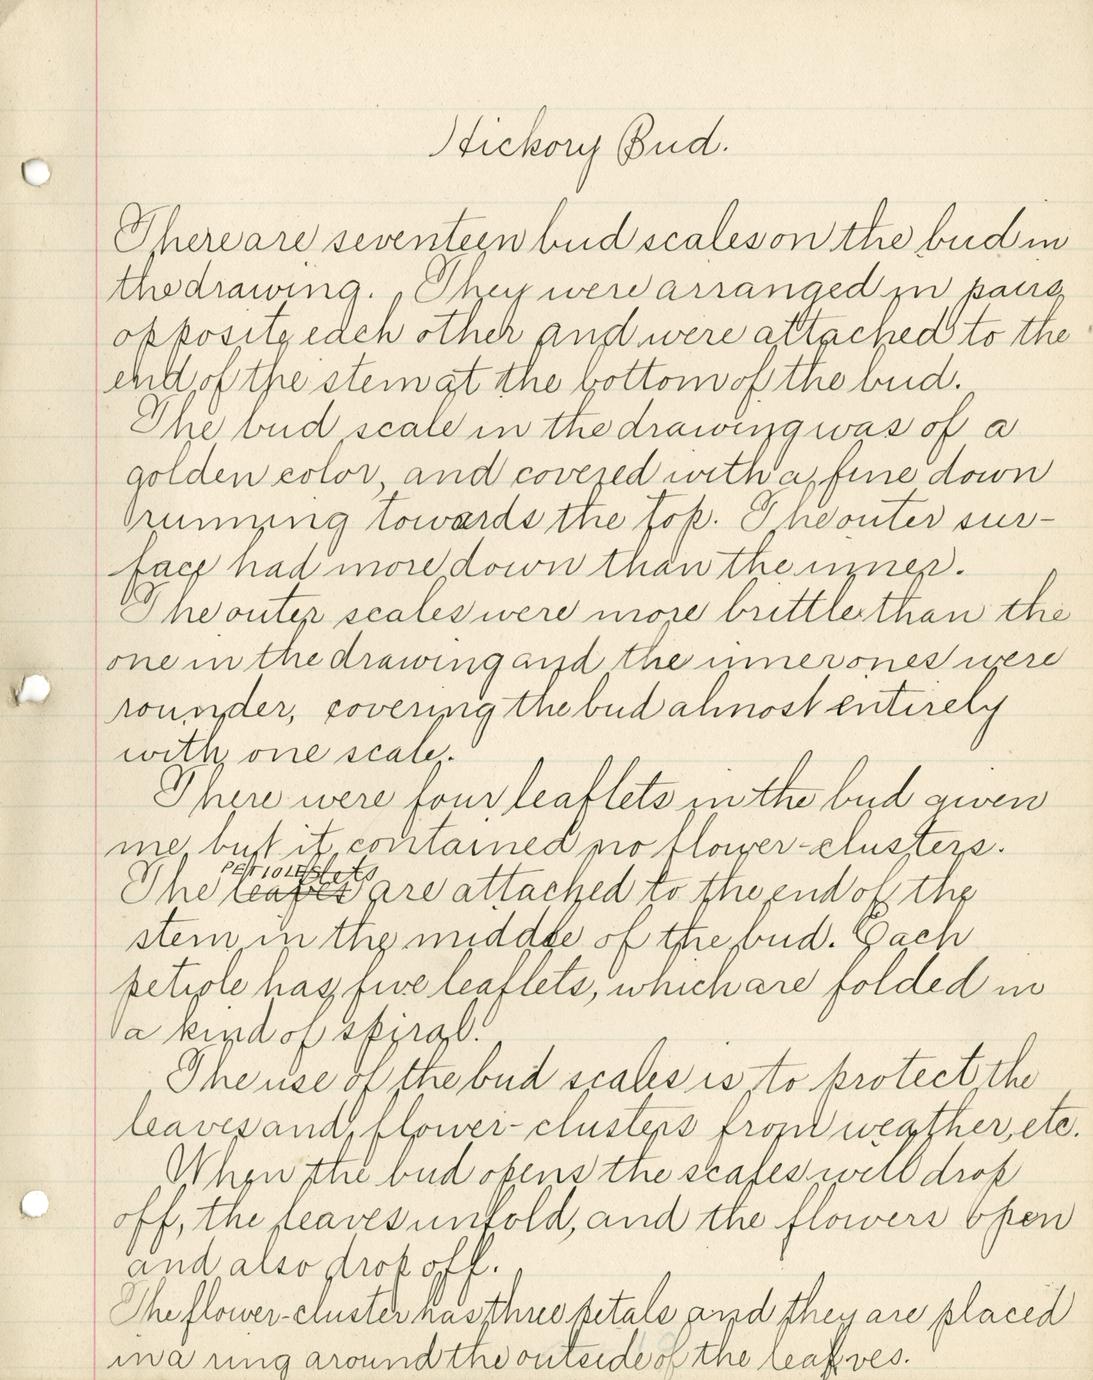 Hickory Bud.
There are seventeen bud scales on the bud in
the drawing. They were arranged in pairs
opposite each other and were attached to the
end of the stem at the bottom of the bud.
The bud scale in the drawing was of a
golden color, and covered with a fine down
running towards the top. The outer sur-
face had more down than the inner.
The outer scales were more brittle than the
one in the drawing and the inner ones were
rounder, covering the bud almost entirely
with one scale.
There were four leaflets in the bud given
me but it contained no flower-clusters.
PETIOLES
The leaflets are attached to the end of the
stem in the middle of the bud. Each
petiole has five leaflets, which are folded in
a kind of spiral.
The use of the bud scales is to protect the
leaves and flower-clusters from weather, etc.
When the bud opens the scales will drop
off, the leaves unfold, and the flowers open
and also drop off.
The flower-cluster has three petals and they are placed
in a ring around the outside of the leaves.